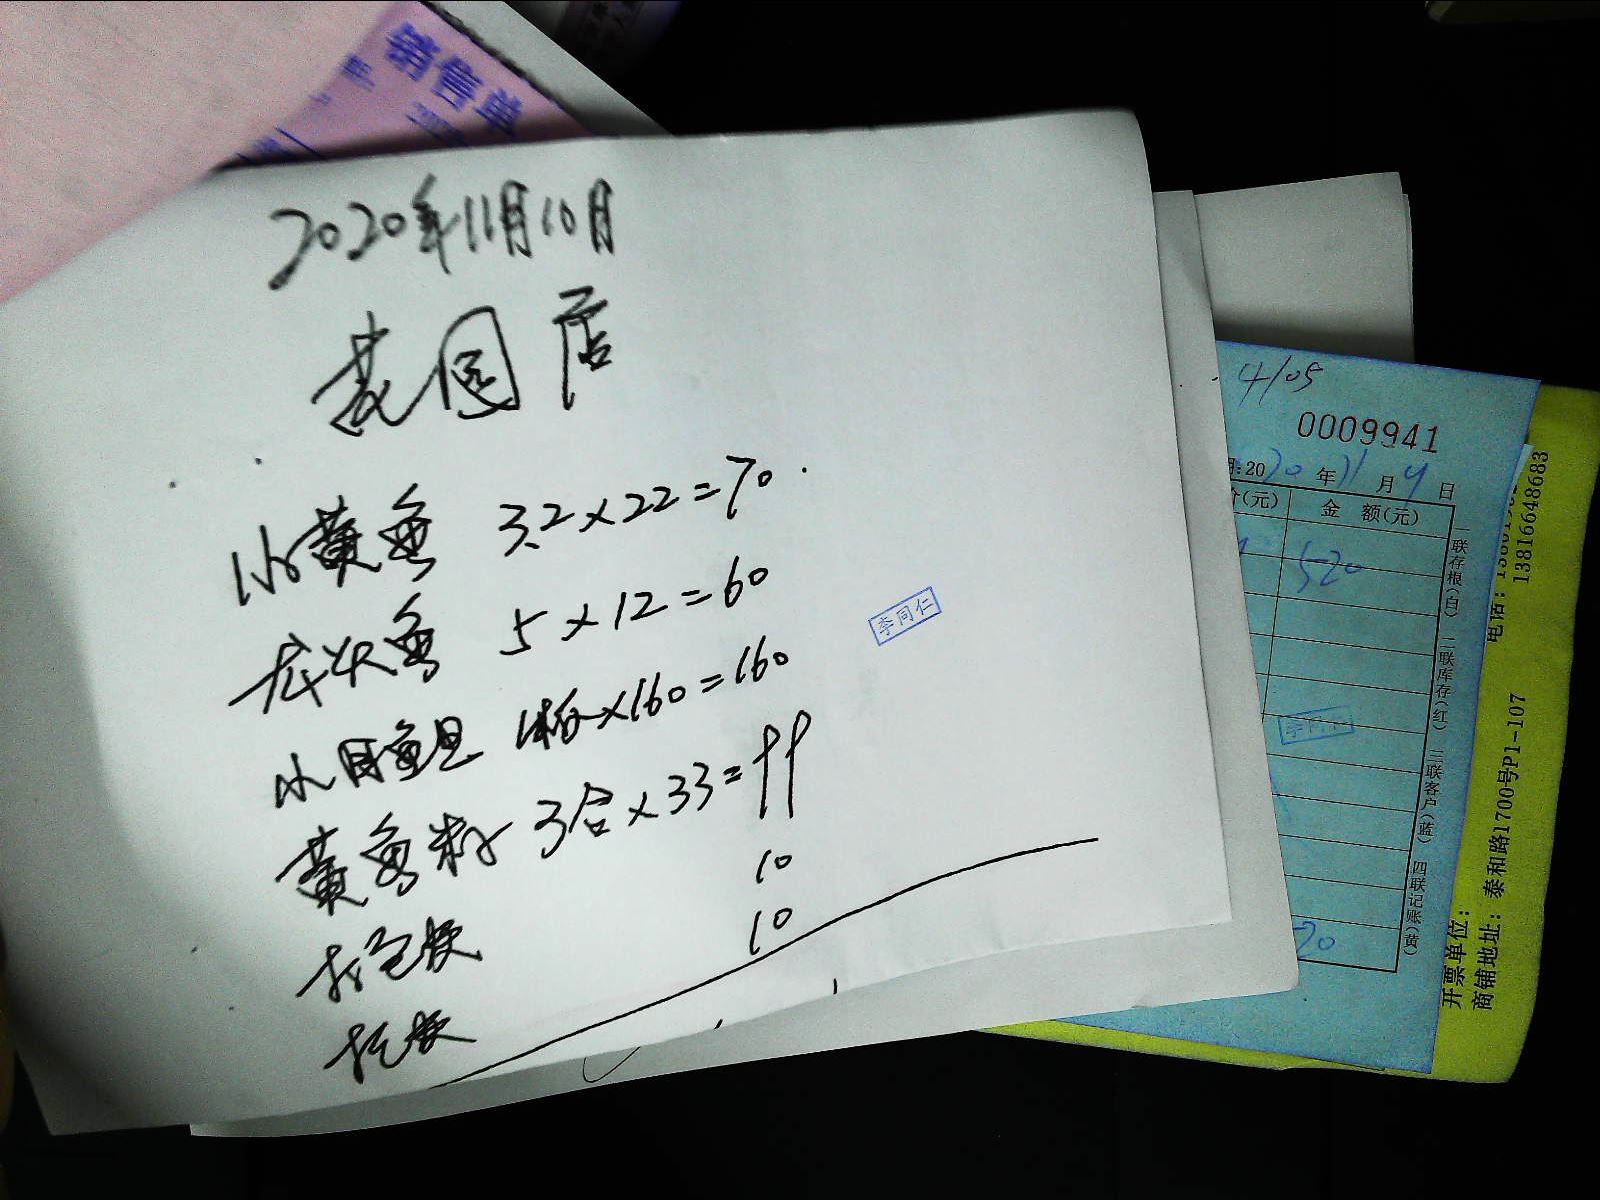 销售单
2020年11月10月
花园店
小黄鱼 3.2×22=70
龙头鱼 5×12=60
小目鱼旦 1箱×160=160
黄鱼籽 3合×33=99
10
10
李同仁
4/05
0009941
20 20 年 11 月 9 日
价(元) 金 额(元)
520
一联存根(白) 二联库存(红) 三联客户(蓝) 四联记账(黄)
开票单位:
商铺地址: 泰和路1700号P1-107
电话:
13816648683